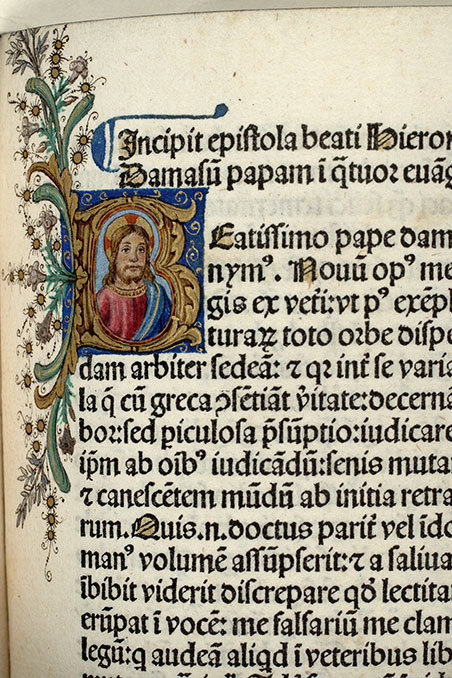 Incipit epistola beati Hieron
Damasũ papam i q̃tuor euãg
Beatissimo pape dam
nymꝰ. Nouũ opꝰ me
gis ex veti: vt pꝰ exẽpl
turaꝝ toto orbe dispe
dam arbiter sedeã: ⁊ qꝛ int̃ se varia
la q̃ cũ greca ꝯsẽtiãt v̾itate: decernã
bor: sed piculosa p̃sũptio: iudicare
ip̃m ab oĩbꝰ iudicãdũ: senis mutar
⁊ canescẽtem mũdũ ab initia retra
rum. Quis .n. doctus parit̃ vel ĩdo
manꝰ volumẽ assũpserit: ⁊ a saliua
ĩbibit viderit discrepare qđ lectita
erũpat ĩ vocẽ: me falsariũ me clam
legũ: q audeã aliqd ĩ veteribus lib